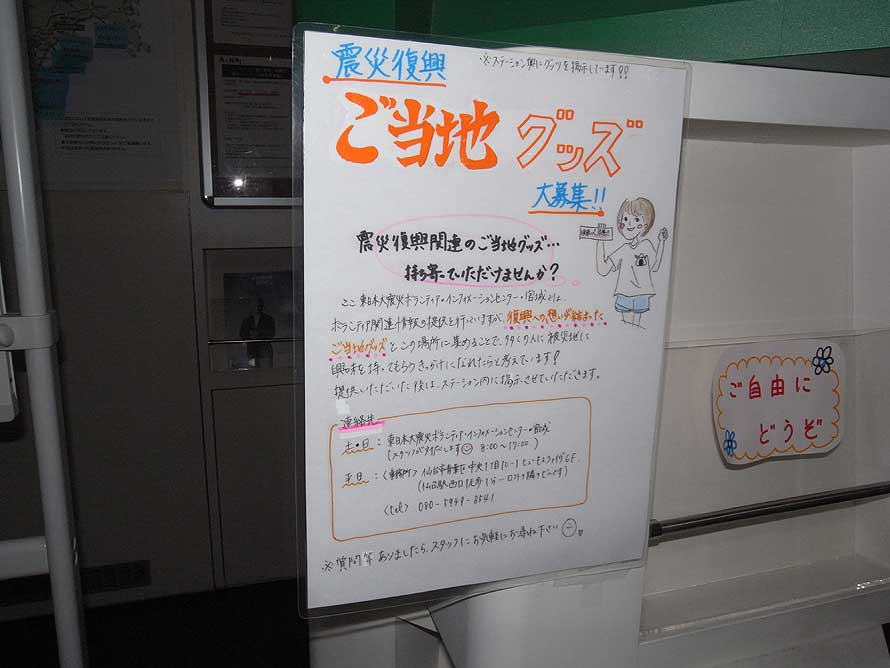 震災復興
※ステーション側にグッズを掲示しています!!
ご当地グッズ
大募集!!
震災復興関連のご当地グッズ…
持ち寄っていただけませんか?
ここ東日本大震災ボランティア・インフォメーションセンター・宮城では、
ボランティア関連情報の提供を行っていますが、復興への想いが詰まった
ご当地グッズをこの場所に集めることで、多くの人に被災地に
興味を持ってもらうきっかけになれたらと考えています!
提供いただいた後は、ステーション内に掲示させていただきます。
連絡先
土・日:東日本大震災ボランティア・インフォメーションセンター・宮城
(スタッフがいます 8:00~17:00)
平日:〈事務所〉仙台市青葉区中央1丁目10-1 ヒューモスファイヴ6F
(仙台駅西口徒歩1分 ロフトの隣りです)
〈tel〉080-5949-8541
※質問等ありましたら、スタッフにお気軽にお尋ね下さい
ご自由に
どうぞ